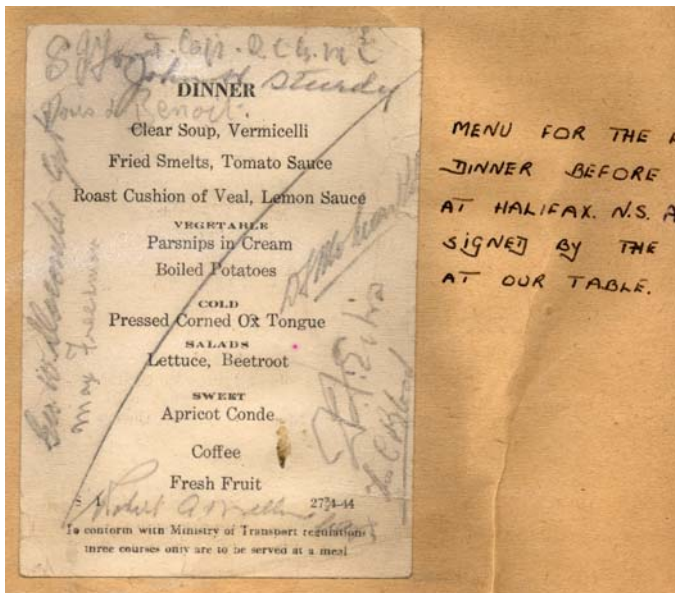 John H Sturdy
DINNER
Benoit.
Clear Soup, Vermicelli
Fried Smelts, Tomato Sauce
Roast Cushion of Veal, Lemon Sauce
VEGETABLE
Parsnips in Cream
Boiled Potatoes
COLD
Pressed Corned Ox Tongue
SALADS
Lettuce, Beetroot
SWEET
Apricot Conde
Coffee
Fresh Fruit
Robert A
To conform with Ministry of Transport regulations
three courses only are to be served at a meal
Geo. W.
May Freedman
MENU FOR THE
DINNER BEFORE
AT HALIFAX. N.S. A
SIGNED BY THE
AT OUR TABLE.